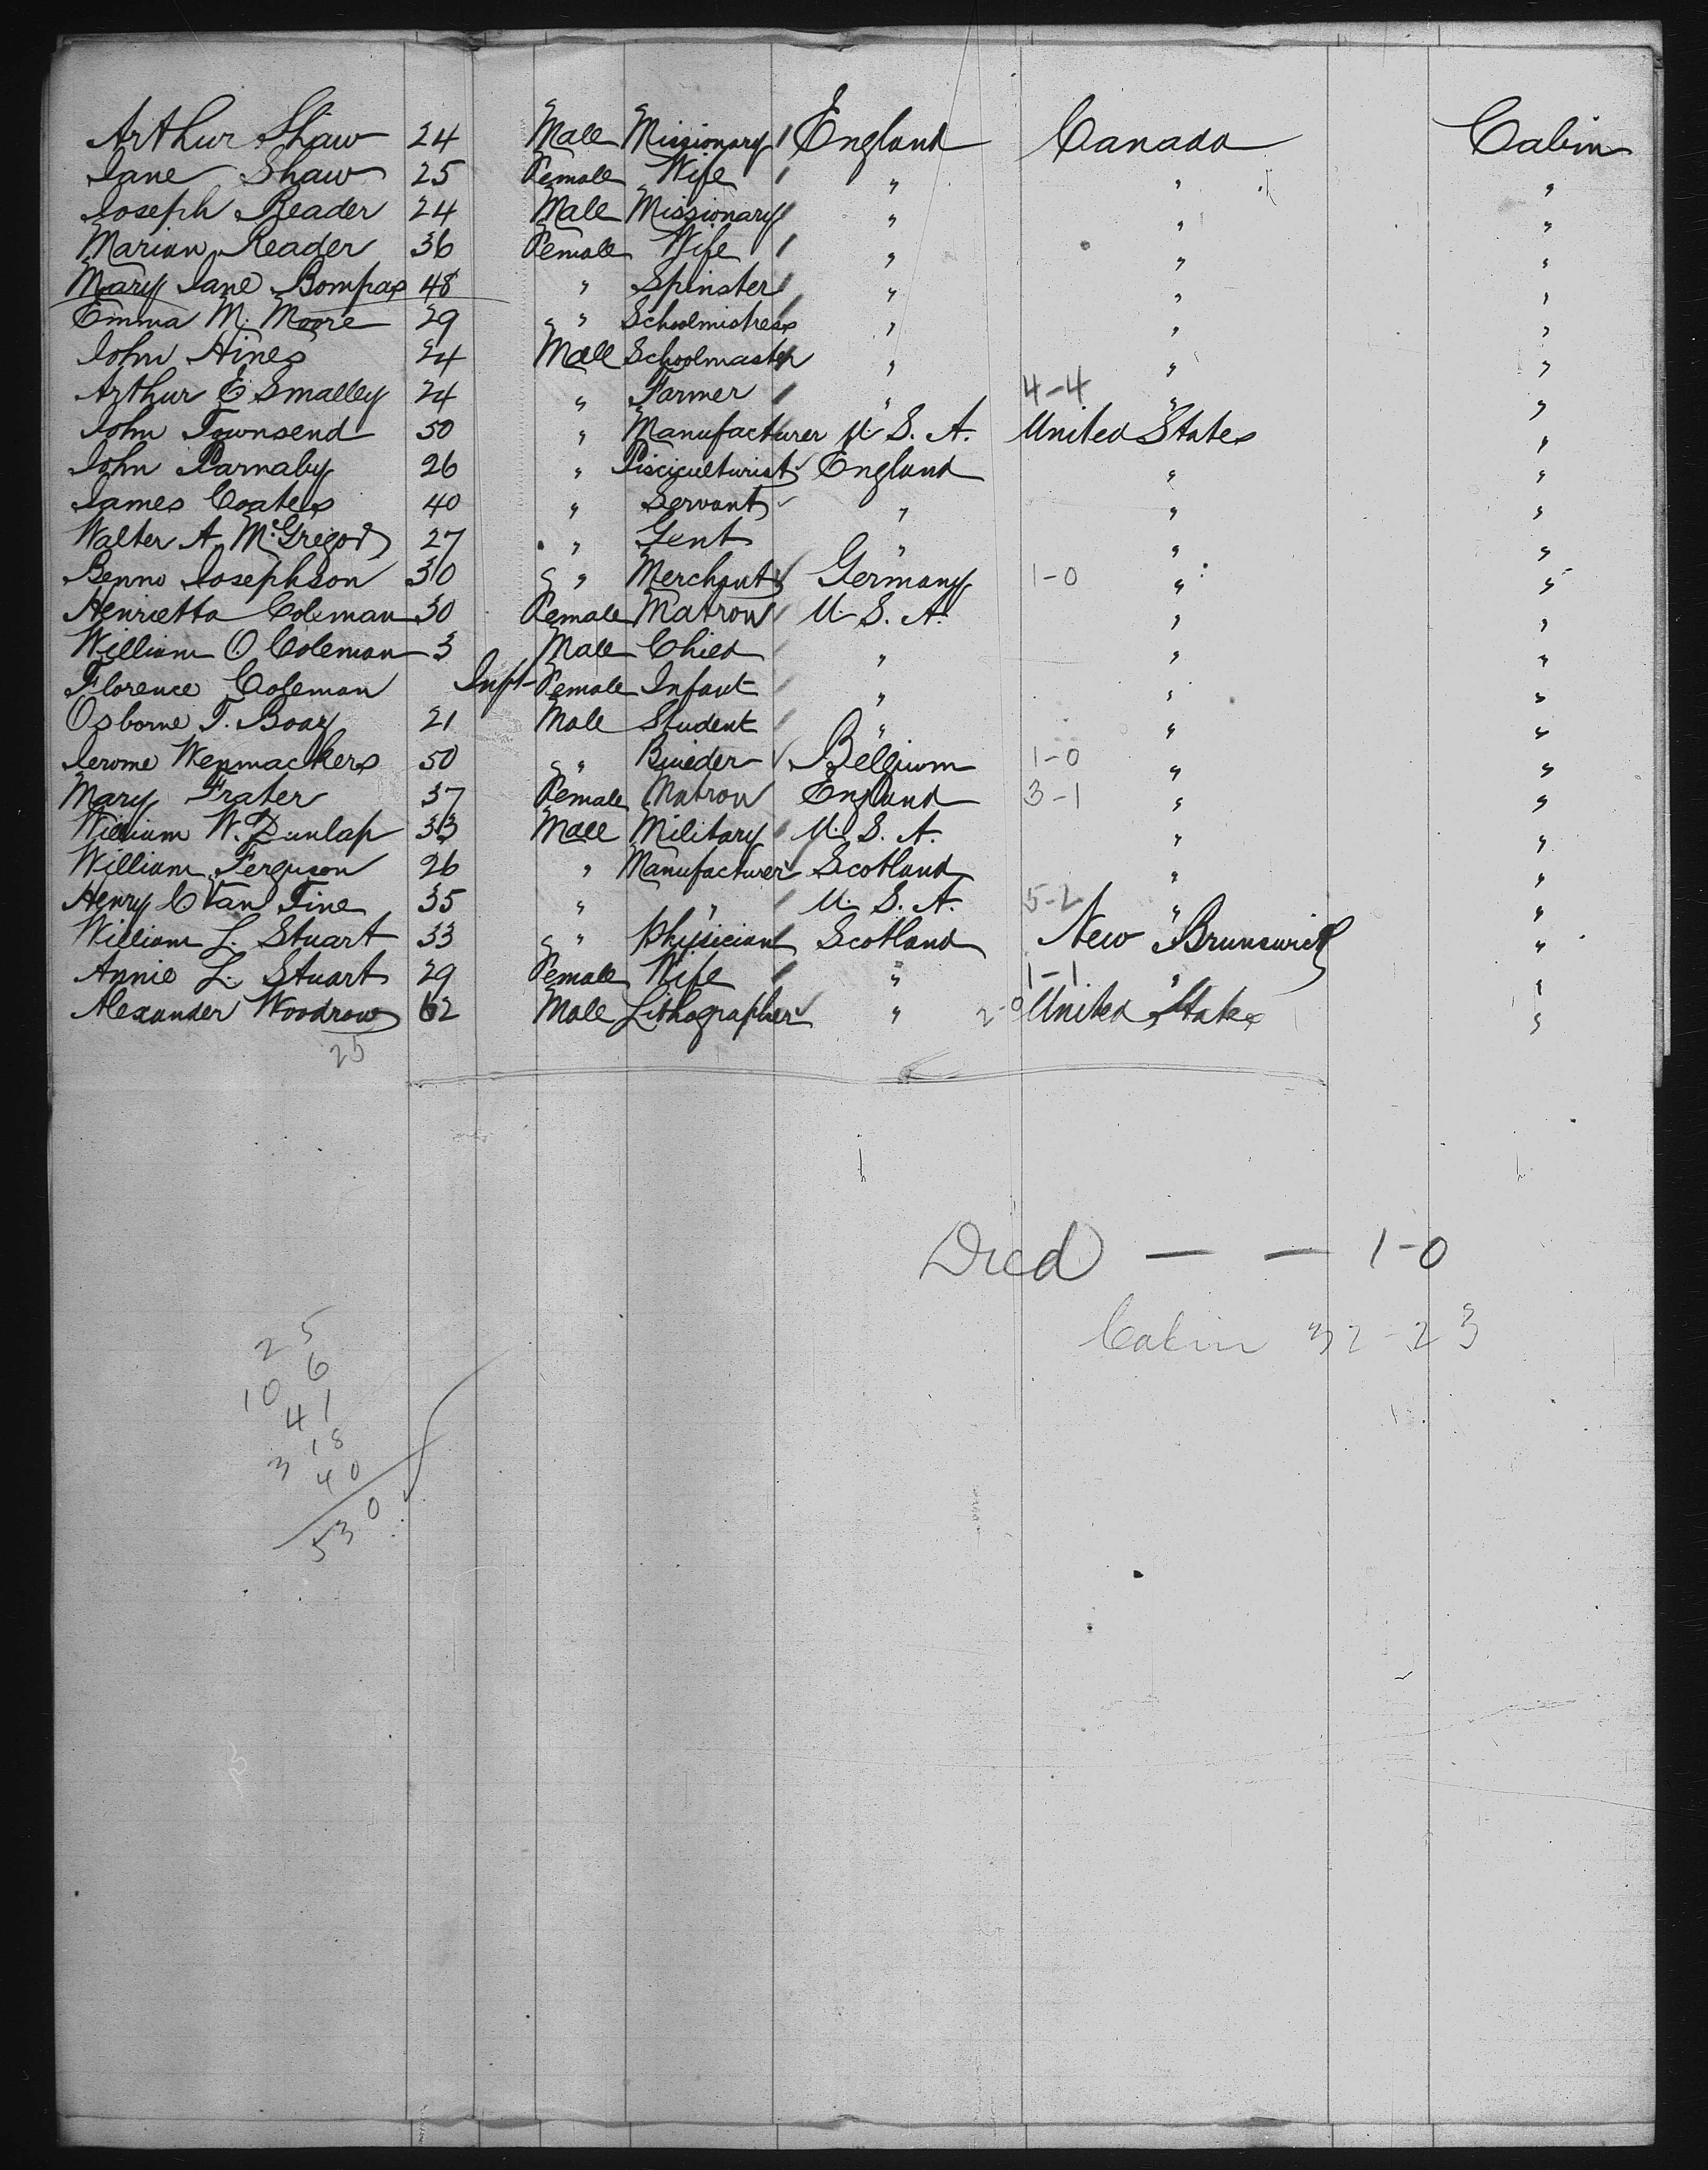 Arthur Shaw 24 Male Missionary England Canada Cabin
Jane Shaw 25 Female Wife " " "
Joseph Reader 24 Male Missionary " " "
Marian Reader 36 Female Wife " " "
Mary Jane Bompas 48 " Spinster " " "
Emma M. Moore 29 " Schoolmistress " " "
John Hines 24 Male Schoolmaster " " "
Arthur E Smalley 24 " Farmer " 4-4 " "
John Townsend 50 " Manufacturer U.S.A. United States "
John Parnaby 26 " Pisciculturist England " "
James Coates 40 " Servant " " "
Walter A McGregor 27 " Gent " " "
Benno Josephson 30 " Merchant Germany 1-0 " "
Henrietta Coleman 30 Female Matron U.S.A. " "
William O Coleman 3 Male Child " " "
Florence Coleman Inft Female Infant " " "
Osborne T. Boay 21 Male Student " " "
Jerome Wenmackers 50 " Builder Belgium 1-0 " "
Mary Frater 37 Female Matron England 3-1 " "
William W. Dunlap 33 Male Military U.S.A. " "
William Ferguson 26 " Manufacturer Scotland " "
Henry C Van Tine 35 " " U.S.A. 5-2 " "
William L. Stuart 33 " Physician Scotland New Brunswick "
Annie L. Stuart 29 Female Wife " 1-1 " "
Alexander Woodrow 62 Male Lithographer " 2-0 United States "
25
Died — — 1-0
Cabin 32-23
25
106
41
318
40
530